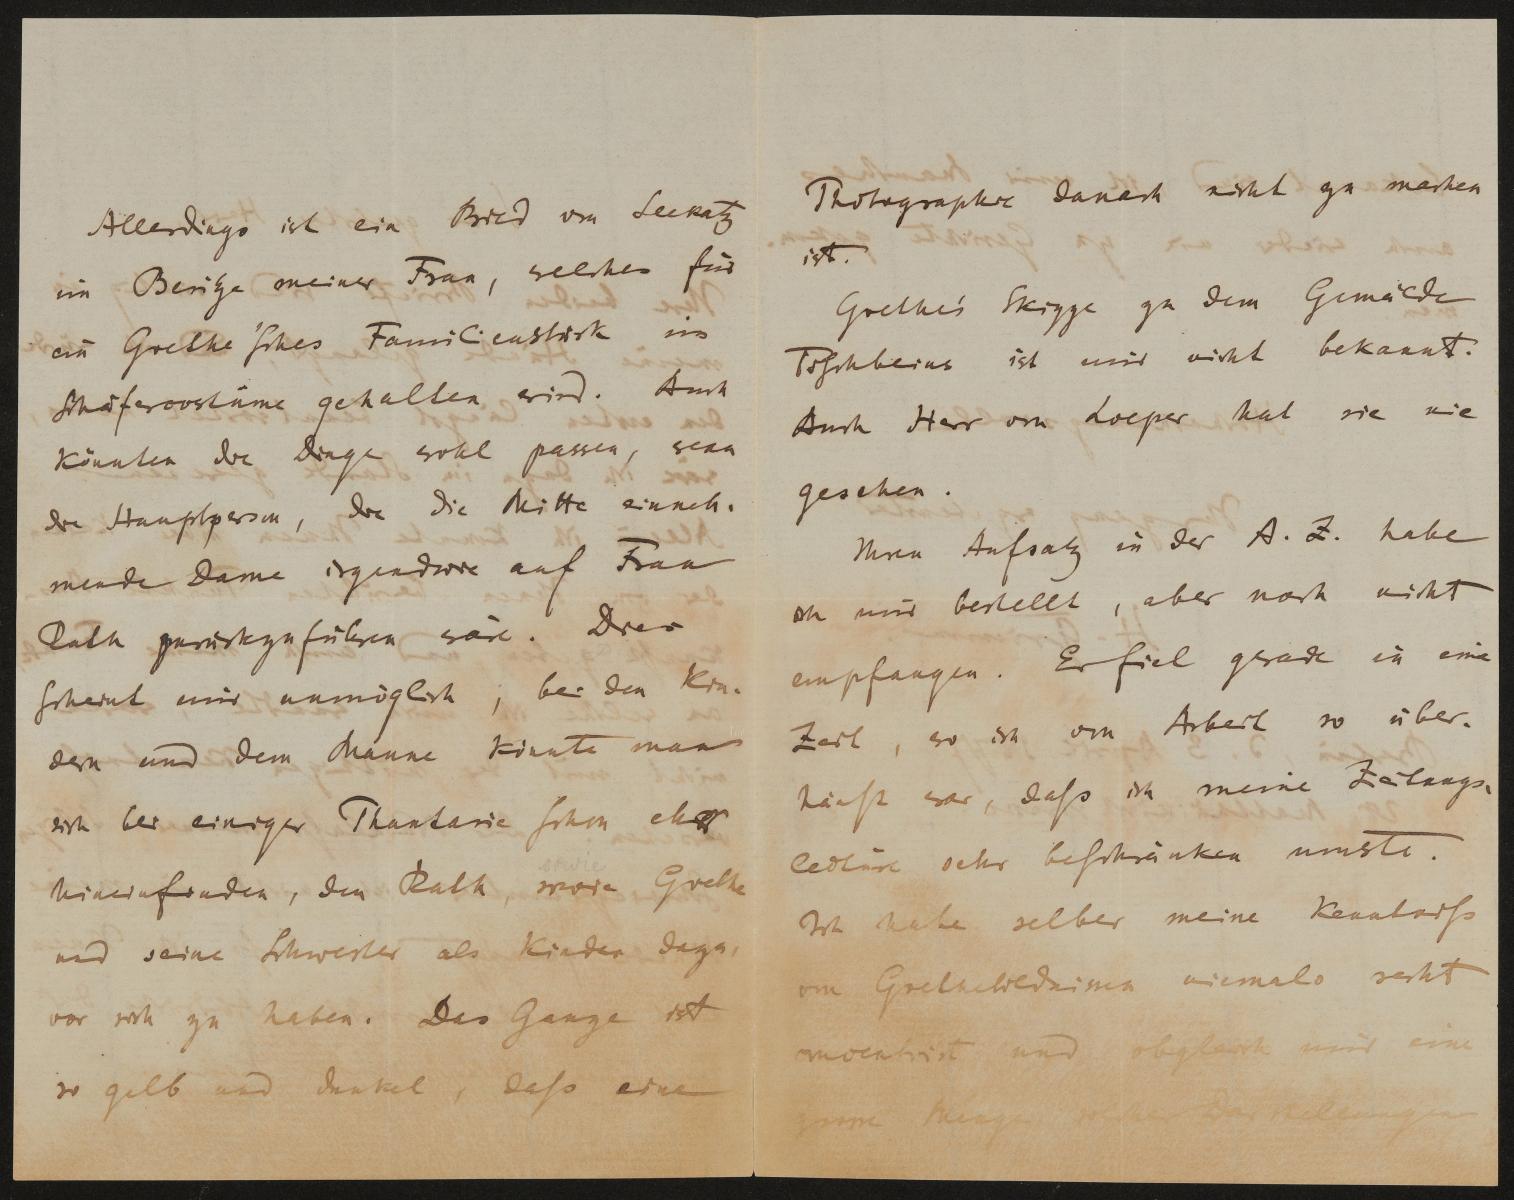 Allerdings ist ein Bild von Seekatz
im Besitze meiner Frau, welches für
ein Goethe'sches Familienstück im
Schäfercostüme gehalten wird. Auch
könnten die Dinge wohl passen, wenn
die Hauptperson, die die Mitte einneh-
mende Dame irgendwie auf Frau
Rath zurückzuführen wäre. Dies
scheint mir unmöglich; bei den Kin-
dern und dem Manne könnte man
sich bei einiger Phantasie schon eher
hineinfinden, den Rath, sowie Goethe
und seine Schwester als Kinder dazu,
vor sich zu haben. Das Ganze ist
so gelb und dunkel, daß eine
Photographie danach nicht zu machen
ist.
Goethe's Skizze zu dem Gemälde
Tischbeins ist mir nicht bekannt.
Auch Herr von Loeper hat sie nie
gesehen.
Ihren Aufsatz in der A. Z. habe
ich mir bestellt, aber noch nicht
empfangen. Er fiel gerade in eine
Zeit, wo ich von Arbeit so über-
häuft war, daß ich meine Zeitungs-
lectüre sehr beschränken musste.
Ich habe selber meine Kenntniß
von Goethebildnissen niemals recht
concentrirt und obgleich mir eine
grosse Menge solcher Darstellungen